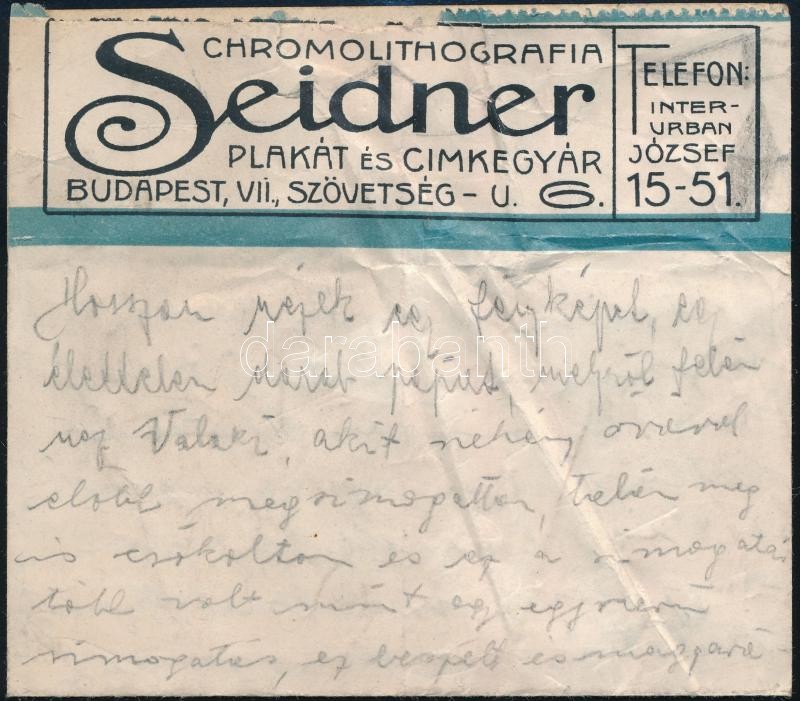 CHROMOLITHOGRAFIA
Seidner
PLAKÁT ÉS CIMKEGYÁR
BUDAPEST, VII., SZÖVETSÉG - U. 6.
TELEFON:
INTER-
URBAN
JÓZSEF
15-51.
Hosszan nézek egy fényképet, egy
élettelen darab papirt, melyről felém
néz Valaki, akit néhány órával
előbb megsimogattam, talán meg
is csókoltam és ez a simogatás
több volt mint egy egyszerű
simogatás, ez beszélt és magyará
darabanth